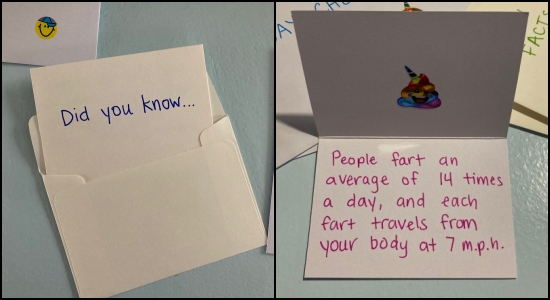 Did you know...
FACTS
People fart an
average of 14 times
a day, and each
fart travels from
your body at 7 m.p.h.